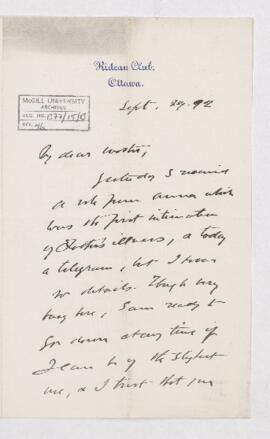 Rideau Club.
Ottawa.
McGILL UNIVERSITY
ARCHIVES
ACC. NO. 1377/15/
REF.
Sept. 29. 92
My dear
Yesterday I received
a note from Anna which
was the first intimation
of illness, & today
a telegram, but I have
no details. Though very
busy here, I am ready to
go down at any time if
I can be of the slightest
use, & I trust that you